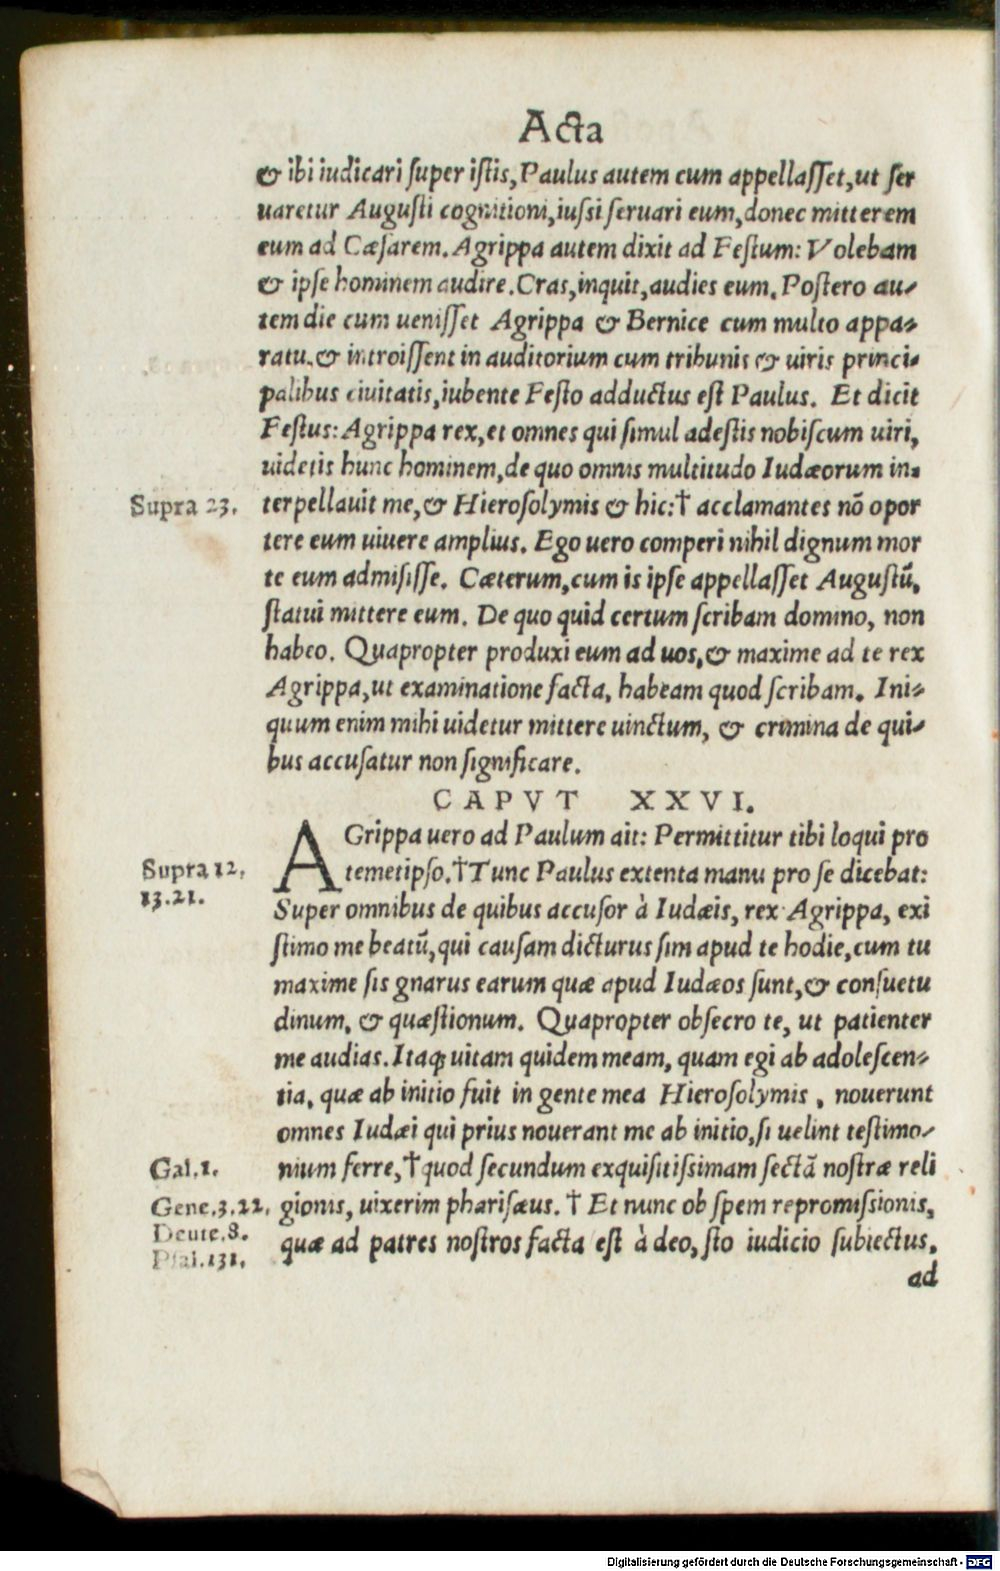 Acta
& ibi iudicari ſuper iſtis, Paulus autem cum appellaſſet, ut ſer
uaretur Auguſti cognitioni, iuſsi ſeruari eum, donec mitterem
eum ad Cæſarem. Agrippa autem dixit ad Feſtum: Volebam
& ipſe hominem audire. Cras, inquit, audies eum. Poſtero au-
tem die cum ueniſſet Agrippa & Bernice cum multo appa-
ratu, & introiſſent in auditorium cum tribunis & uiris princi-
palibus ciuitatis, iubente Feſto adductus eſt Paulus. Et dicit
Feſtus: Agrippa rex, et omnes qui ſimul adeſtis nobiſcum uiri,
uidetis hunc hominem, de quo omnis multitudo Iudæorum in-
Supra 23. terpellauit me, & Hieroſolymis & hic: † acclamantes nō opor
tere eum uiuere amplius. Ego uero comperi nihil dignum mor
te eum admiſiſſe. Cæterum, cum is ipſe appellaſſet Auguſtū,
ſtatui mittere eum. De quo quid certum ſcribam domino, non
habeo. Quapropter produxi eum ad uos, & maxime ad te rex
Agrippa, ut examinatione facta, habeam quod ſcribam. Ini-
quum enim mihi uidetur mittere uinctum, & crimina de qui-
bus accuſatur non ſignificare.
CAPVT XXVI.
AGrippa uero ad Paulum ait: Permittitur tibi loqui pro
Supra 12. temetipſo. † Tunc Paulus extenta manu pro ſe dicebat:
13.21. Super omnibus de quibus accuſor à Iudæis, rex Agrippa, exi
ſtimo me beatū, qui cauſam dicturus ſim apud te hodie, cum tu
maxime ſis gnarus earum quæ apud Iudæos ſunt, & conſuetu
dinum, & quæſtionum. Quapropter obſecro te, ut patienter
me audias. Itaq; uitam quidem meam, quam egi ab adoleſcen-
tia, quæ ab initio fuit in gente mea Hieroſolymis, nouerunt
omnes Iudæi qui prius nouerant me ab initio, ſi uelint teſtimo-
Gal.1. nium ferre, † quod ſecundum exquiſitiſsimam ſectā noſtræ reli
Gene.3.22. gionis, uixerim phariſæus. † Et nunc ob ſpem repromiſsionis,
Deute.8.
Pſal.131. quæ ad patres noſtros facta eſt à deo, ſto iudicio ſubiectus,
ad
Digitalisierung gefördert durch die Deutsche Forschungsgemeinschaft - DFG